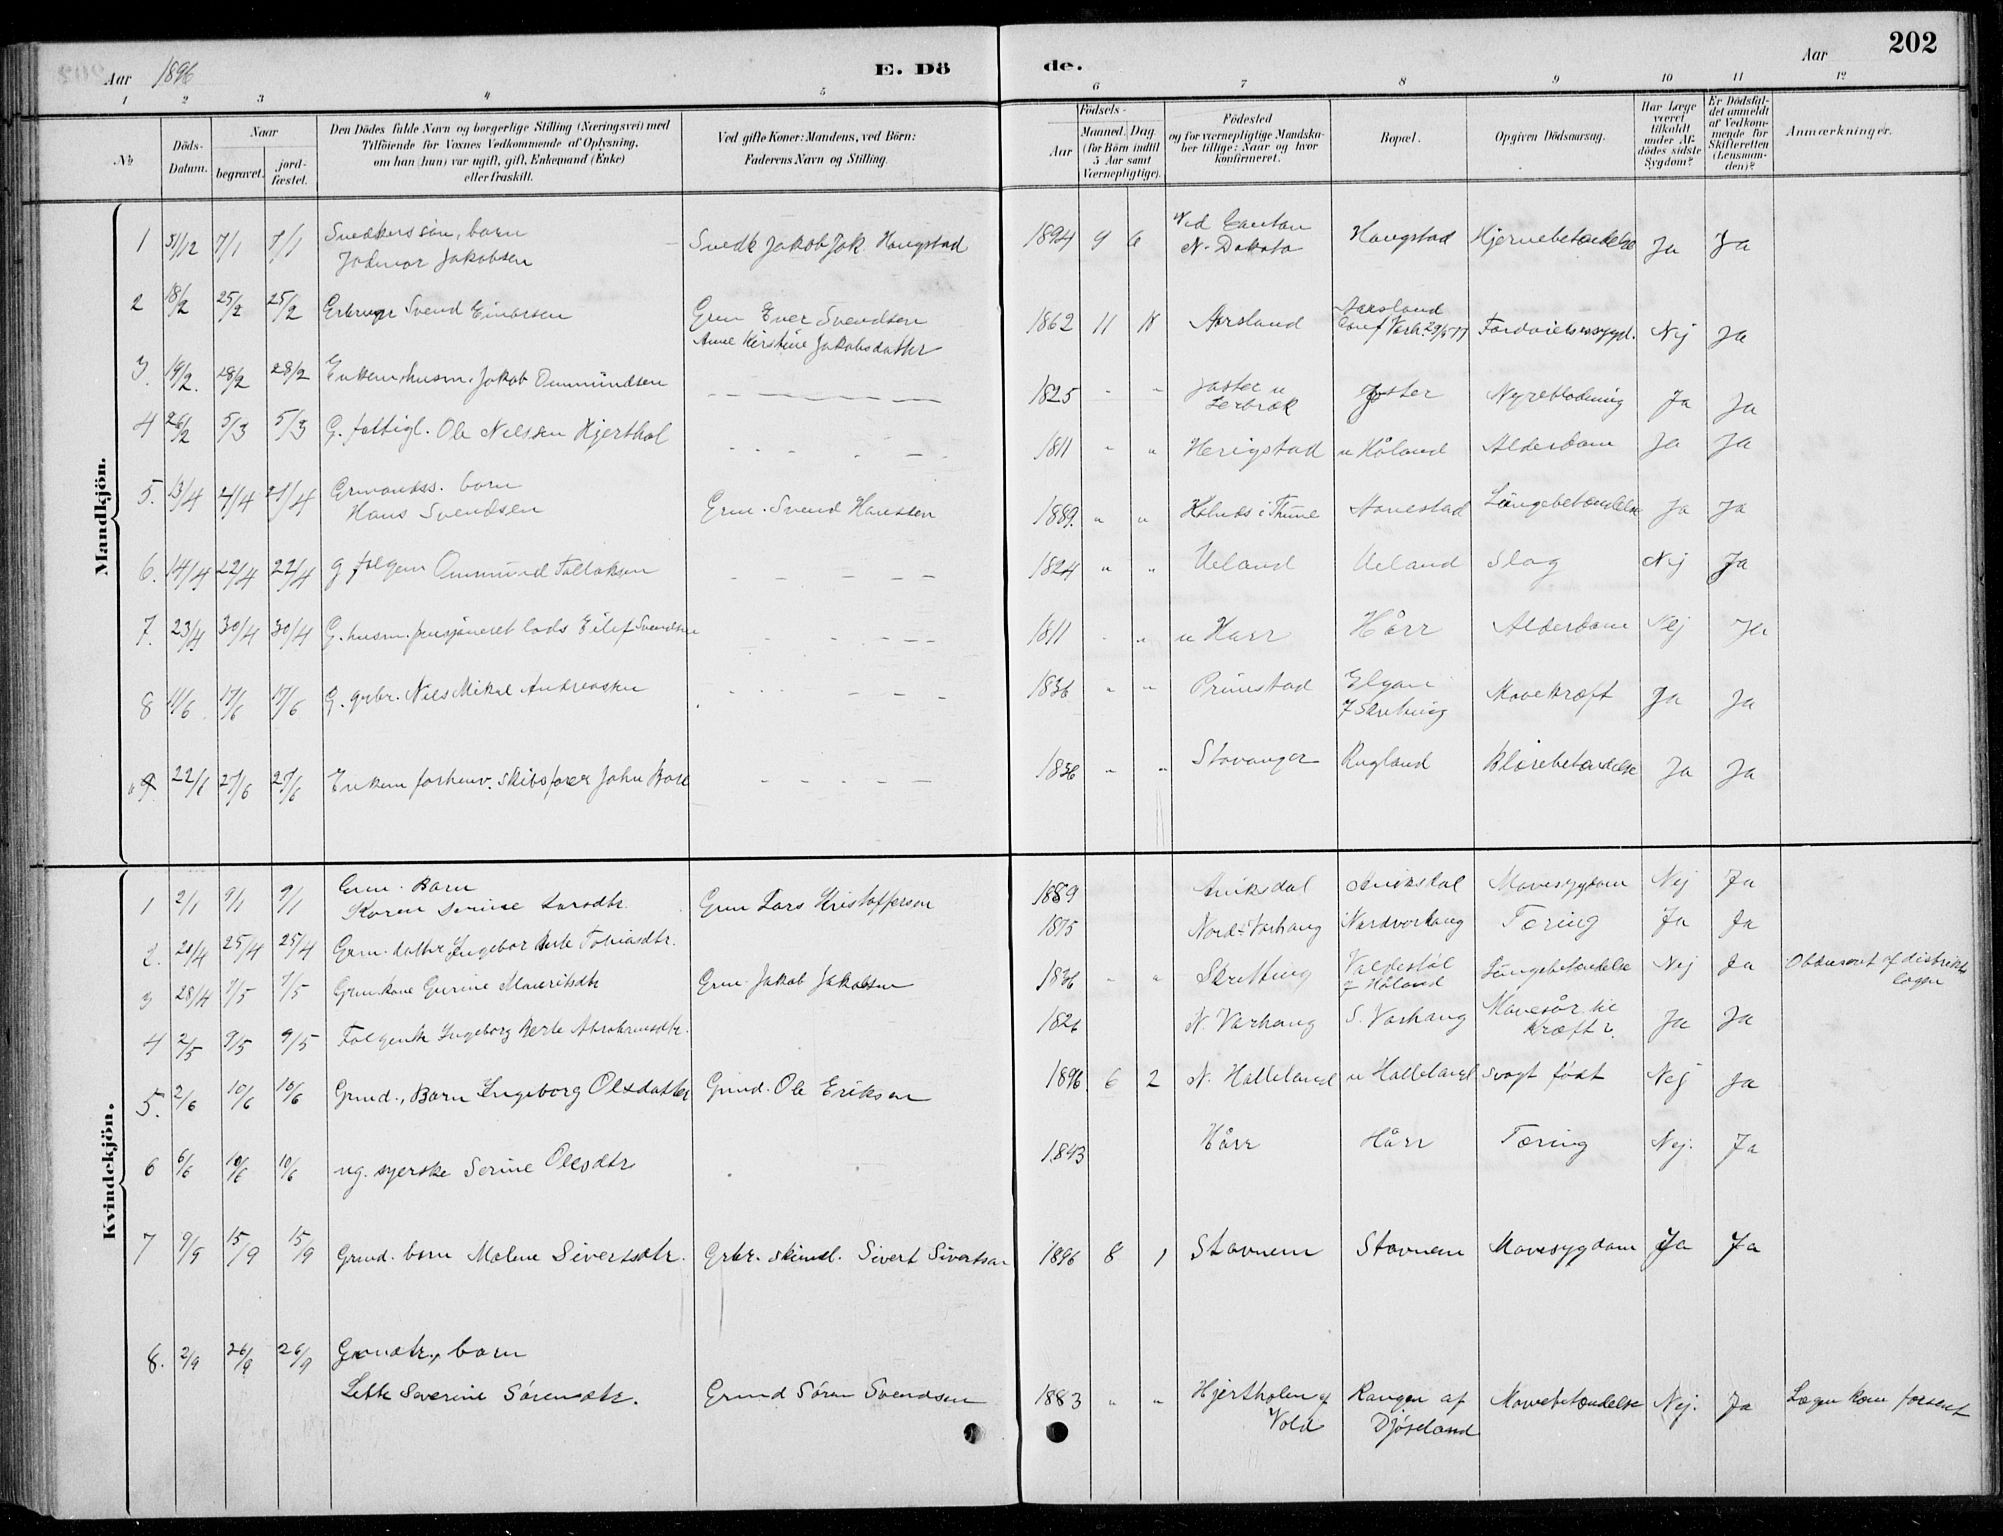 Aar 1896 E. Dö de. Aar 202
1 2 3 4 5 6 7 8 9 10 11 12
No
Döds-Datum.
Naar
begravet.
jord-fæstet.
Den Dödes fulde Navn og borgerlige Stilling (Næringsvei) med
Tilföiende for Voxnes Vedkommende af Oplysning,
om han (hun) var ugift, gift, Enkemand (Enke)
eller fraskilt.
Ved gifte Koner: Mandens, ved Börn:
Faderens Navn og Stilling.
Födsels-
Aar
Maaned. Dag.
(for Börn indtil
5 Aar samt
Værnepligtige).
Födested
og for værnepligtige Mandska-
ber tillige: Naar og hvor
konfirmeret.
Bopæl.
Opgiven Dödsaarsag.
Har Læge
været
tilkaldt
under Af-
dödes sidste
Sygdom?
Er Dödsfal-
det anmeldt
af Vedkom-
mende for
Skifteretten
(Lensman-
den)?
Anmærkninger.
Mandkjön.
1 31/12 7/1 7/1 Snedkerssön, barn Snedk Jakob Jak. Haugstad 1894 9 6 Ved Canton Haugstad Hjernebetændelse Ja Ja
Jakobsen N. Dakota
2 18/2 25/2 25/2 Svend Einarsen Grm Ener Svendsen 1862 11 18 Aarsland Aarsland Nej Ja
Anne Kirstine Jakobsdatter
3. 19/2. 28/2 28/2 Enkem. husm. Jakob Ommundsen 1825 " " Nyreblödning Ja Ja
4 26/2 5/3 5/3 G. fattigl. Ole Nielsen Hjerthol 1811 " " Herigstad u Håland Alderdom Ja Ja
5. 13/4 21/4 21/4 barn
Hans Svendsen Grm. Svend Hansen 1889. " " i Thime Aanestad Lungebetændelse Ja Ja
6. 14/4 22/4 22/4 g folgem Ommund Tollaksen 1824 " " Ueland Ueland Slag Nej Ja
7. 23/4 30/4 30/4 G. husm. pensjoneret lods Eilef Svendsen 1811 " " u Harr Hårr Alderdom Nej Ja
8 11/6 17/6 17/6 G. grbr. Nils Mikal Andreassen 1836 " " Prinstad Mavekræft Ja Ja
9. 22/6 27/6 27/6 Enkem forhenv. skibsforer John 1836 " " Stavanger Rugland Blærebetændelse Ja Ja
Kvindekjön.
1 2/1 9/1 9/1 Grm. Barn
Karen Serine Larsdtr. Grm Lars Kristoffersen 1889 Aniksdal Aniksdal Mavesygdom Nej Ja
2. 20/4 25/4 25/4 Grm. datter Ingebor Berte Tobiasdtr. 1875 Nord-Varhaug Nordvarhaug Tæring Ja Ja
3 28/4 7/5 7/5 Grm. kone Gurine Mauritsdtr Grm. Jakob Jakobsen 1836 " " Skretting Lungebetændelse Nej Ja Observeret af distrikts
lægen
4 2/5 9/5 9/5 Folgenk Ingeborg Berte Abrahamsdtr. 1826 N. Varhaug S. Varhaug Mavesår til Ja Ja
Kræft
5. 2/6 10/6 10/6 Grmd., Barn Ingeborg Olsdatter Grmd. Ole Eriksen 1896 6 2 N. Halleland u Halleland svagt födt Nej Ja
6 6/6 10/6 10/6 ug. syerske Serine Olesdtr 1843 Hårr Hårr Tæring Nej. Ja
7 9/9 15/9 15/9 Grmd. barn Malene Sivertsdtr. Grbr. skindl. Sivert Sivertsen 1896 8 1 Stavnem Stavnem Mavesygdom Ja Ja
8. 2/9 26/9 26/9 barn
Severine Sörensdtr. Grmd Sören Svendsen 1883 " " Hjertholen af Rangen af Mavebetændelse Nej. Ja Lægen kom forsent
Vold Djöseland